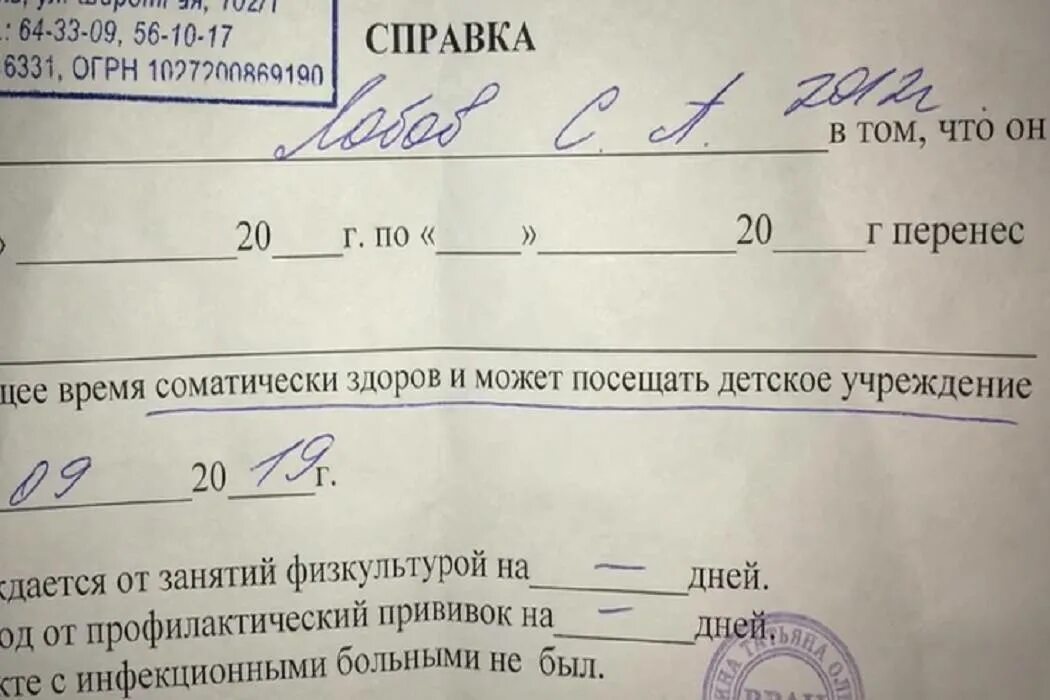 102/1
.: 64-33-09, 56-10-17
6331, ОГРН 1027200869190
СПРАВКА
Лобов С. А. 2012г
в том, что он
» 20 г. по « » 20 г перенес
щее время соматически здоров и может посещать детское учреждение
09 20 19 г.
ждается от занятий физкультурой на — дней.
од от профилактический прививок на — дней.
кте с инфекционными больными не был.
ИНА ТАТЬЯНА ОЛ
ВРАЧ